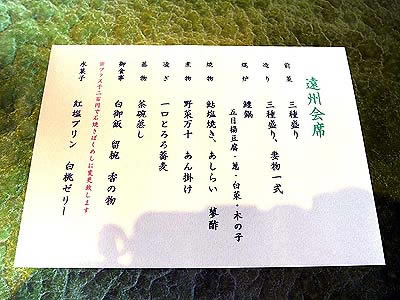 遠州会席
前菜 三種盛り
造り 三種盛り、妻物一式
焜炉 鰻鍋
五目揚豆腐・葱・白菜・木の子
焼物 鮎塩焼き、あしらい 蓼酢
煮物 野菜万十 あん掛け
凌ぎ 一口とろろ蕎麦
蒸物 茶碗蒸し
御食事 白御飯 留椀 香の物
※プラス千二百円で石焼きぼくめしに変更致します
水菓子 紅塩プリン 白桃ゼリー